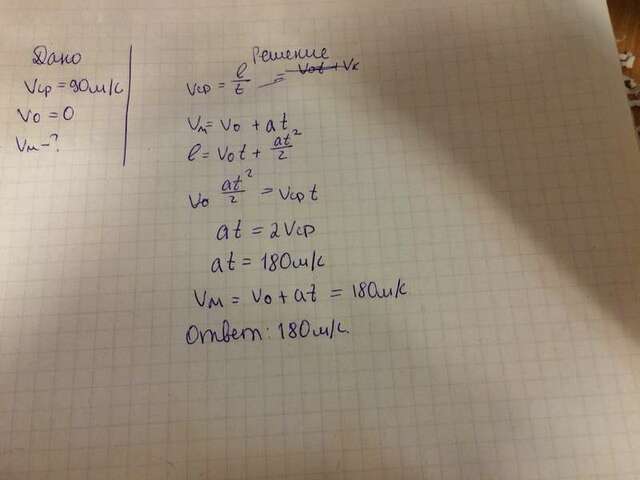 Дано
Vср = 90м/с
V0 = 0
Vм - ?
Решение
Vср = l/t = V0t + Vк
Vм = V0 + at
l = V0t + at²/2
V0 at²/2 = Vср t
at = 2Vср
at = 180м/с
Vм = V0 + at = 180м/с
Ответ: 180м/с.